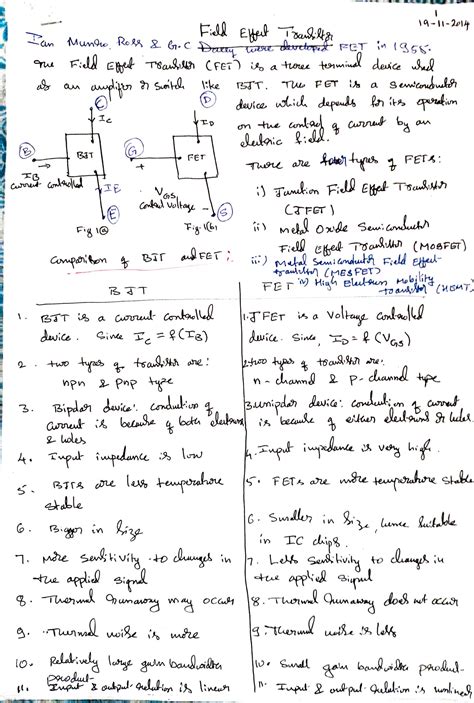 1
19-11-2014
Field Effect Transistor
Ian Munro, Ross & G.C Dacey were developed FET in 1955.
The Field Effect Transistor (FET) is a three terminal device used
as an amplifier or switch like BJT. The FET is a semiconductor
device which depends for its operation
on the control of current by an
electric field.
There are four types of FETs:
i) Junction Field Effect Transistor
(JFET)
ii) Metal Oxide Semiconductor
Field Effect Transistor (MOSFET)
iii) Metal Semiconductor Field Effect
transistor (MESFET)
iv) High Electron Mobility
transistor (HEMT)
C
IC
B
IB
BJT
current controlled
IE
E
Fig 1(a)
D
ID
G
+
FET
VGS
Control Voltage
-
S
Fig 1(b)
Comparison of BJT and FET:
BJT
1. BJT is a current controlled
device. Since IC = f(IB)
2. two types of transistor are:
npn & pnp type
3. Bipolar device: conduction of
current is because of both electrons
& holes
4. Input impedance is low
5. BJTs are less temperature
stable
6. Bigger in size
7. More sensitivity to changes in
the applied signal
8. Thermal runaway may occur
9. Thermal noise is more
10. Relatively large gain bandwidth
product
11. Input & output relation is linear
FET
1. FET is a Voltage Controlled
device. Since, ID = f(VGS)
2. two types of transistor are:
n-channel & p-channel type
3. unipolar device: conduction of current
is because of either electrons or holes.
4. Input impedance is very high.
5. FETs are more temperature stable
6. Smaller in size, hence suitable
in IC chips.
7. Less sensitivity to changes in
the applied signal
8. Thermal runaway does not occur
9. Thermal noise is less
10. Small gain bandwidth product
11. Input & output relation is nonlinear